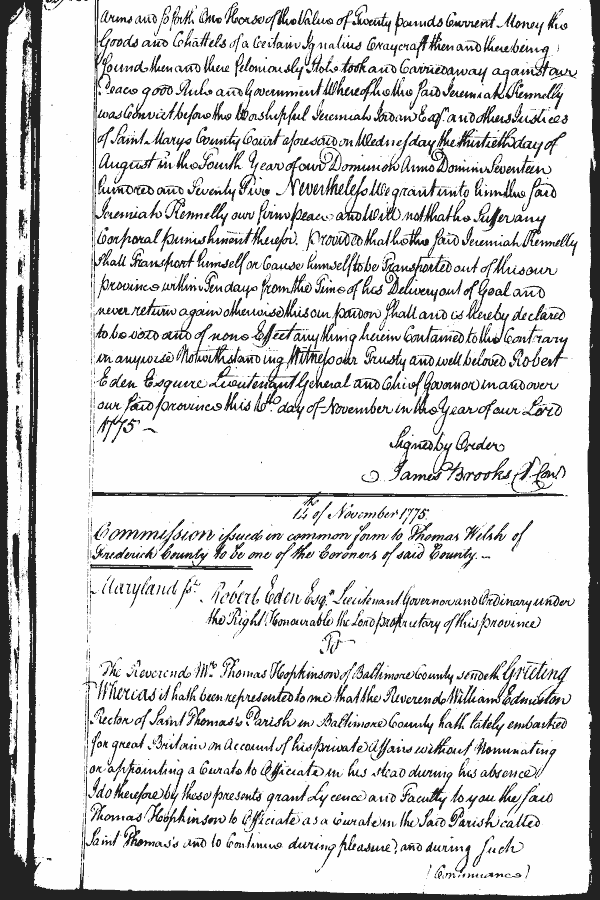 Arms and so forth One Horse of the Value of Twenty pounds Current Money the
Goods and Chattels of a Certain Ignatius Craycraft then and there being
found then and there feloniously Stole took and Carried away against our
Peace good Rule and Government Whereof he the said Jeremiah Kennelly
was Convict before the Worshipful Jeremiah Jordan Esqr. and others Justices
of Saint Marys County Court aforesaid on Wednesday the thirtieth day of
August in the Fourth Year of our Dominion Anno Domini Seventeen
hundred and Seventy Five Nevertheless We grant unto him the said
Jeremiah Kennelly our firm peace and Will not that he Suffer any
Corporal punishment therefor. provided that he the said Jeremiah Kennelly
Shall Transport himself or Cause himself to be Transported out of this our
province within Ten days from the Time of his Delivery out of Goal and
never return again otherwise this our pardon Shall and is hereby declared
to be void and of none Effect any thing herein Contained to the Contrary
in anywise Notwithstanding Witness our Trusty and well beloved Robert
Eden Esquire Lieutenant General and Chief Governor in and over
our said province this 6th. day of November in the Year of our Lord
1775 ~
Signed by Order
James Brooks
14th of November 1775
Commission issued in common form to Thomas Welsh of
Frederick County to be one of the Coroners of said County. —
Maryland ss. Robert Eden Esqr. Lieutenant Governor and Ordinary under
the Right Honourable the Lord proprietary of this province
To
The Reverend Mr. Thomas Hopkinson of Baltimore County sendeth Greeting
Whereas it hath been represented to me that the Reverend William Edmiston
Rector of Saint Thomas's Parish in Baltimore County hath lately embarked
for great Britain on Account of his private Affairs without Nominating
or appointing a Curate to Officiate in his stead during his absence
I do therefore by these presents grant Lycence and Faculty to you the said
Thomas Hopkinson to Officiate as a Curate in the said Parish called
Saint Thomas's and to Continue during pleasure, and during such
(Continuance)